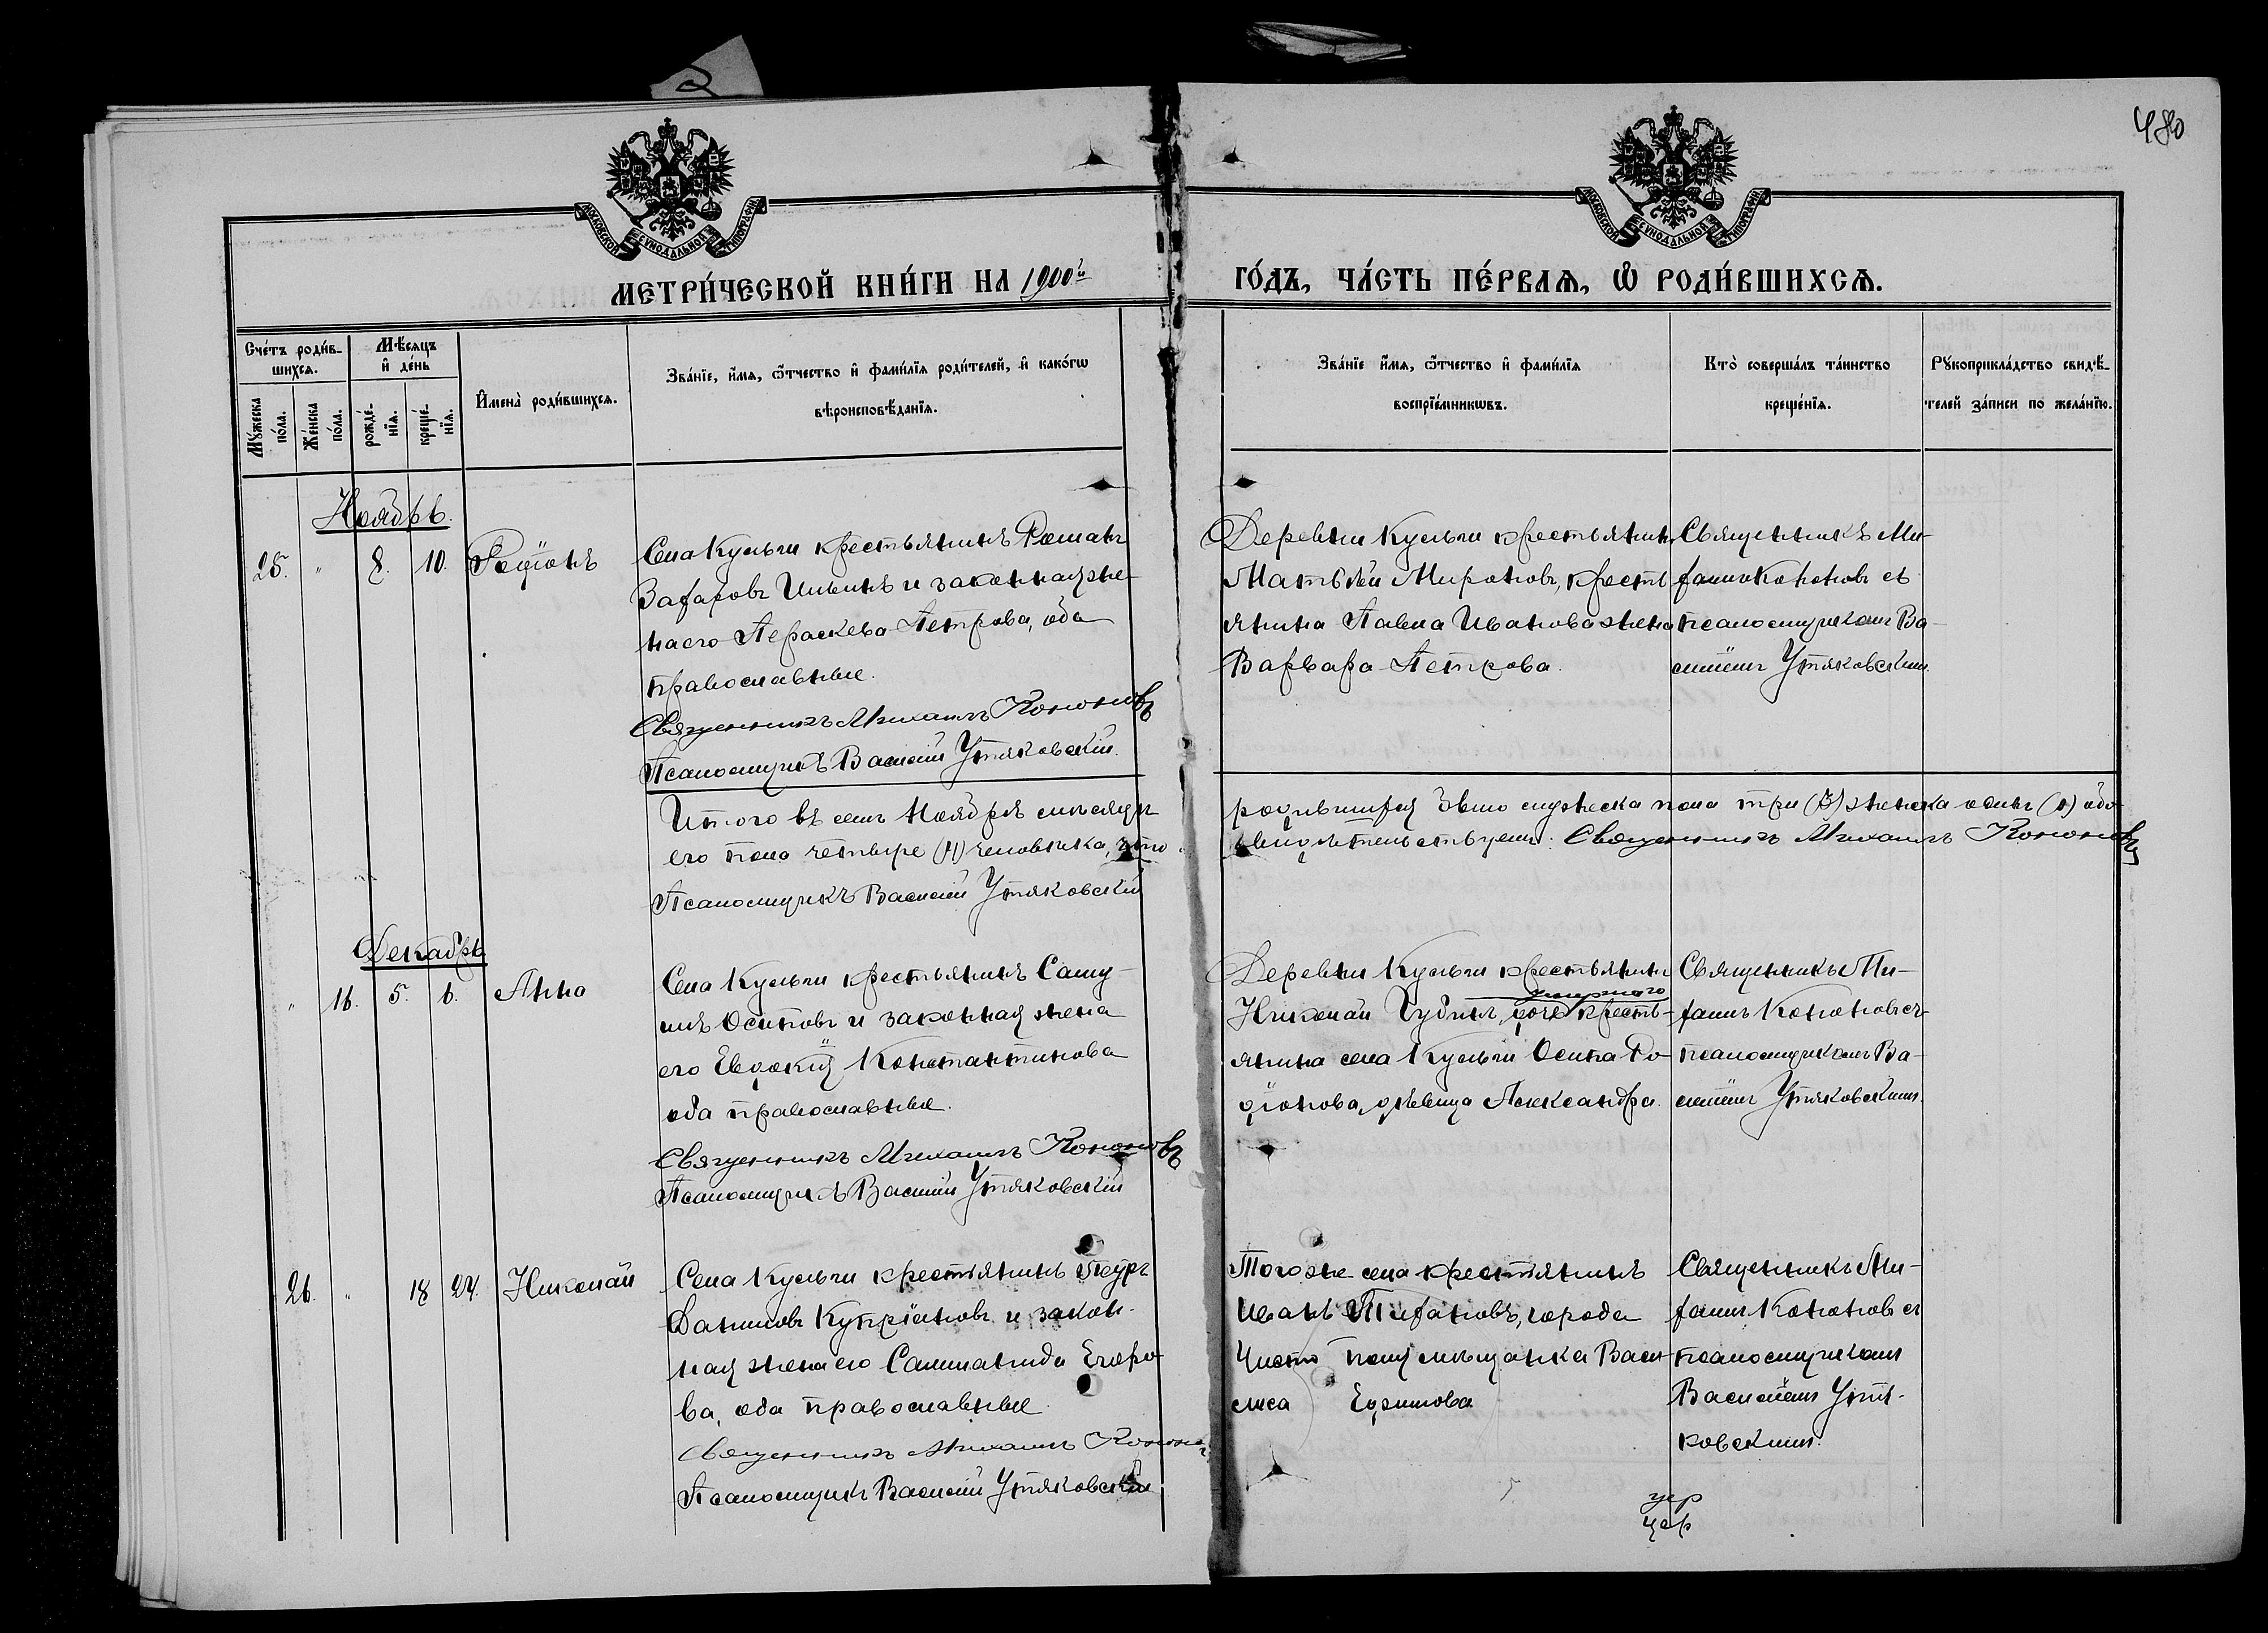 480
МОСКОВСКОЙ СѴНОДАЛЬНОЙ ТИПОГРАФІИ
МОСКОВСКОЙ СѴНОДАЛЬНОЙ ТИПОГРАФІИ
МЕТРИ́ЧЕСКОЙ КНИ́ГИ НА 1900й
ГО́ДЪ, ЧА́СТЬ ПЕ́РВАѦ, Ѽ РОДИ́ВШИХСѦ.
Сче́тъ роди́в-
шихсѧ.
Мꙋ́жеска
по́ла.
Же́нска
по́ла.
Мѣ́сѧцъ
и҆ де́нь
рожде́-
нїѧ.
креще́-
нїѧ.
И҆мена̀ роди́вшихсѧ.
Зва́нїе, и҆́мѧ, ѻ҆́тчество и҆ фамі́лїѧ роди́телей, и҆ како́гѡ
вѣроисповѣ́данїѧ.
Зва́нїе и҆́мѧ, ѻ҆́тчество и҆ фамі́лїѧ
воспрїе́мникѡвъ.
Кто̀ соверша́лъ та́инство
креще́нїѧ.
Рꙋкоприкла́дство свидѣ́-
телей за́писи по жела́нїю.
Ноябрь.
25. " 8. 10. Родіонъ
Села Кульги крестьянинъ Романъ
Захаровъ Ильинъ и законная же-
на его Параскева Петрова, оба
православные.
Священникъ Михаилъ Кононовъ
Псаломщикъ Василій Утяковскій.
Деревни Кульги крестьянинъ
Матвѣй Мироновъ, кресть
янина Павла Иванова жена
Варвара Петрова.
Священникъ Ми-
хаилъ Кононовъ съ
псаломщикомъ Ва-
силіемъ Утяковскимъ.
Итого въ семъ Ноябрѣ мѣсяцѣ
родившихся было мужеска пола три (3) женска одинъ (1) обо-
его пола четыре (4) человѣка, что
свидѣтельствуемъ: Священникъ Михаилъ Кононовъ
Псаломщикъ Василій Утяковскій
Декабрь
" 16. 5. 6. Анна
Села Кульги крестьянинъ Саму-
илъ Осиповъ и законная жена
его Евдокія Константинова
оба православные.
Священникъ Михаилъ Кононовъ
Псаломщикъ Василій Утяковскій
Деревни Кульги крестьянинъ
Николай Чубинъ, дочь умершаго кресть-
янина села Кульги Осипа Ро-
діонова, дѣвица Александра.
Священникъ Ми-
хаилъ Кононовъ съ
псаломщикомъ Ва-
силіемъ Утяковскимъ.
26. " 18 24. Николай
Села Кульги крестьянинъ
Даниловъ Купріановъ и закон-
ная жена его Саломанида Егоро-
ва, оба православные
Священникъ Михаилъ Кононовъ
Псаломщикъ Василій Утяковскій
Тогоже села крестьянинъ
Иванъ Тифановъ, города
Чисто поля мѣщанка Васи-
лиса Ефимова
Священникъ Ми-
хаилъ Кононовъ съ
псаломщикомъ
Василіемъ Утя-
ковскимъ.